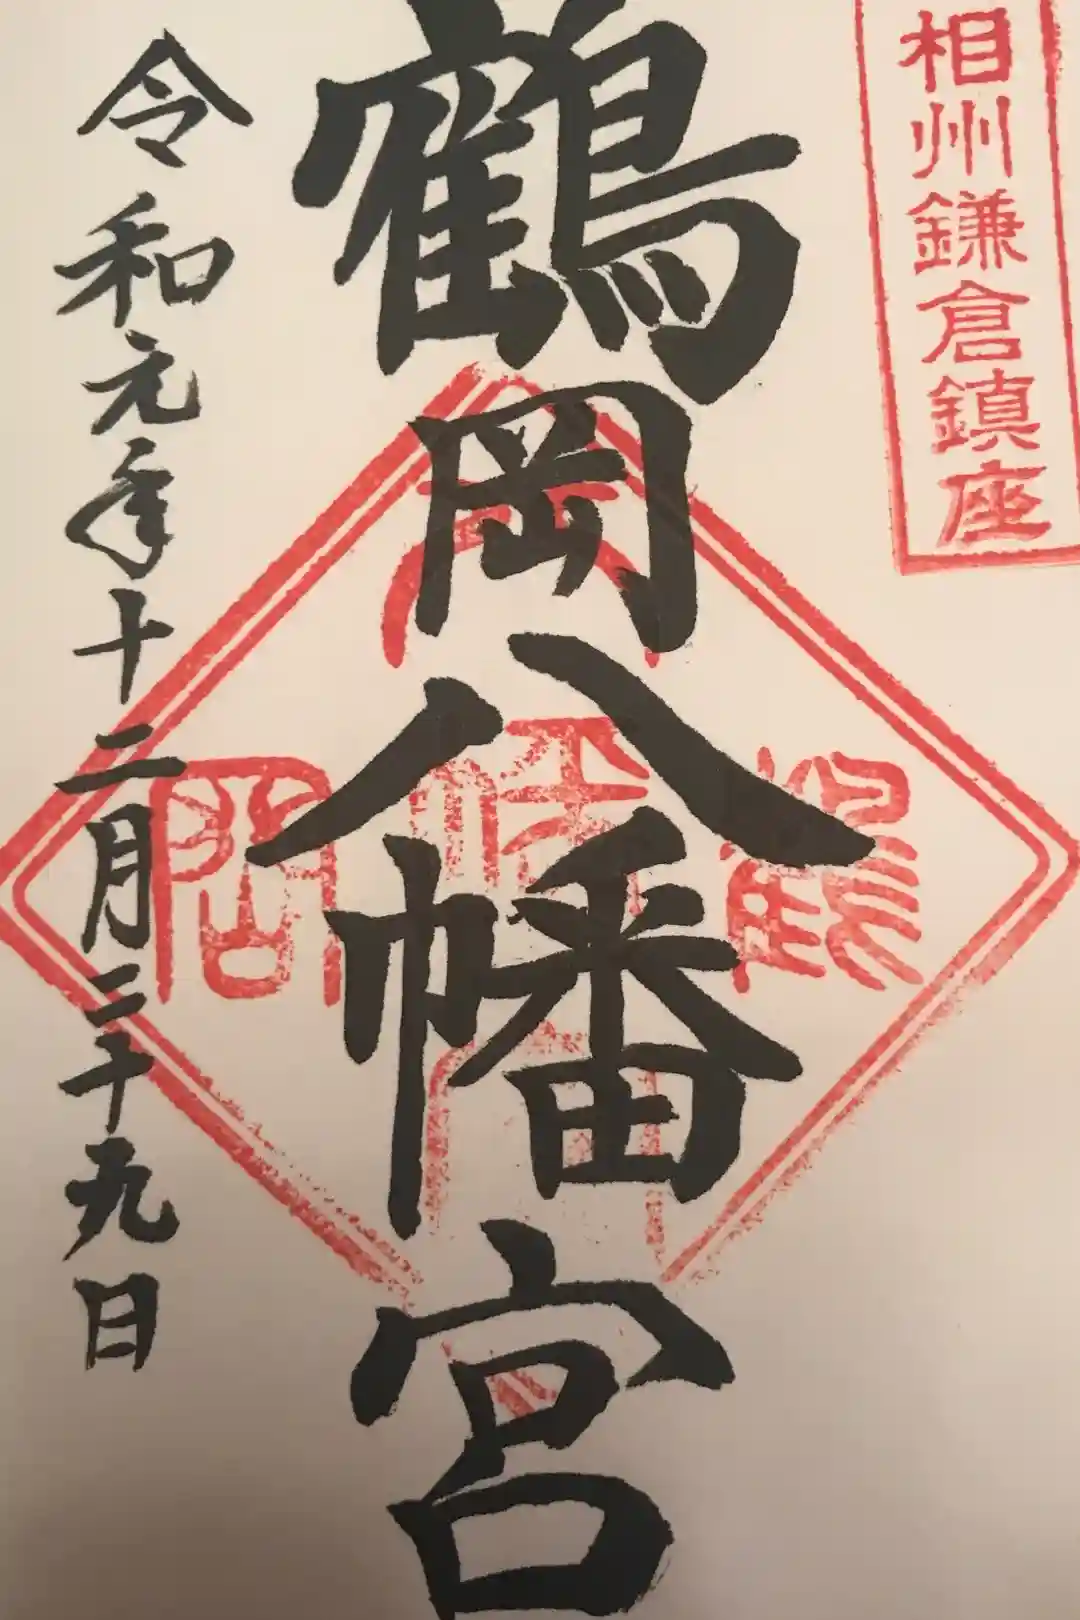 相州鎌倉鎮座
鶴岡八幡宮
令和元年十二月二十九日